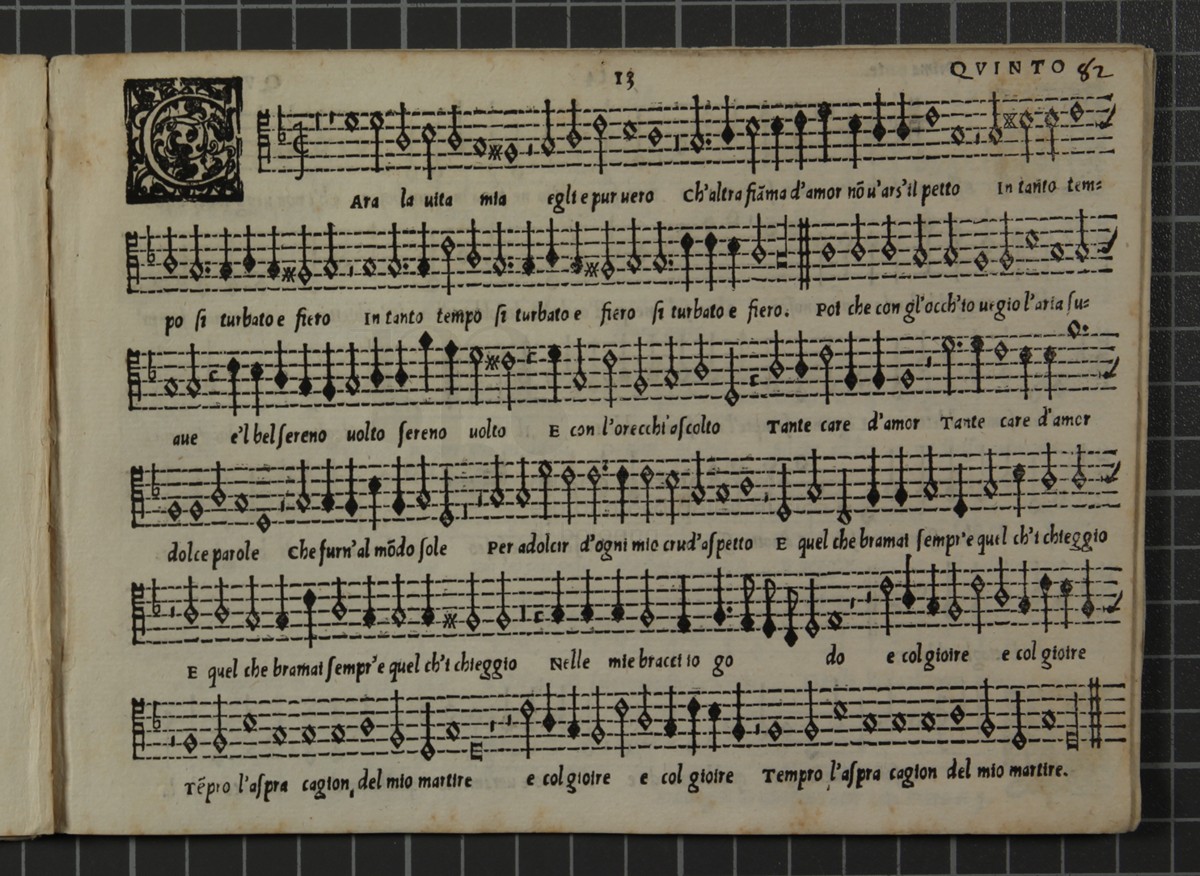 13 QVINTO 82
C Ara la uita mia egli e pur uero Ch'altra fiãma d'amor nõ u'ars'il petto In tanto tem=
po ſi turbato e fiero In tanto tempo ſi turbato e fiero ſi turbato e fiero. Poi che con gl'occh'io uegio l'aria ſu=
aue e'l bel ſereno uolto ſereno uolto E con l'orecchi aſcolto Tante care d'amor Tante care d'amor
dolce parole Che furn'al mõdo ſole Per adolcir d'ogni mio crud'aſpetto E quel che bramai ſempr'e quel ch'i chieggio
E quel che bramai ſempr'e quel ch'i chieggio Nelle mie bracci io go do e col gioire e col gioire
Tẽpro l'aſpra cagion, del mio martire e col gioire e col gioire Tempro l'aſpra cagion del mio martire.